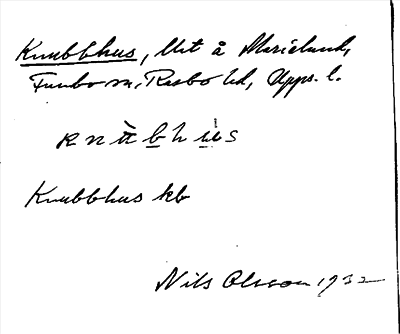 Knubbhus, lht å Marielund,
Funbo sn, Rasbo hd, Upps. l.
knùbhùs
Knubbhus kb
Nils Olsson 1932